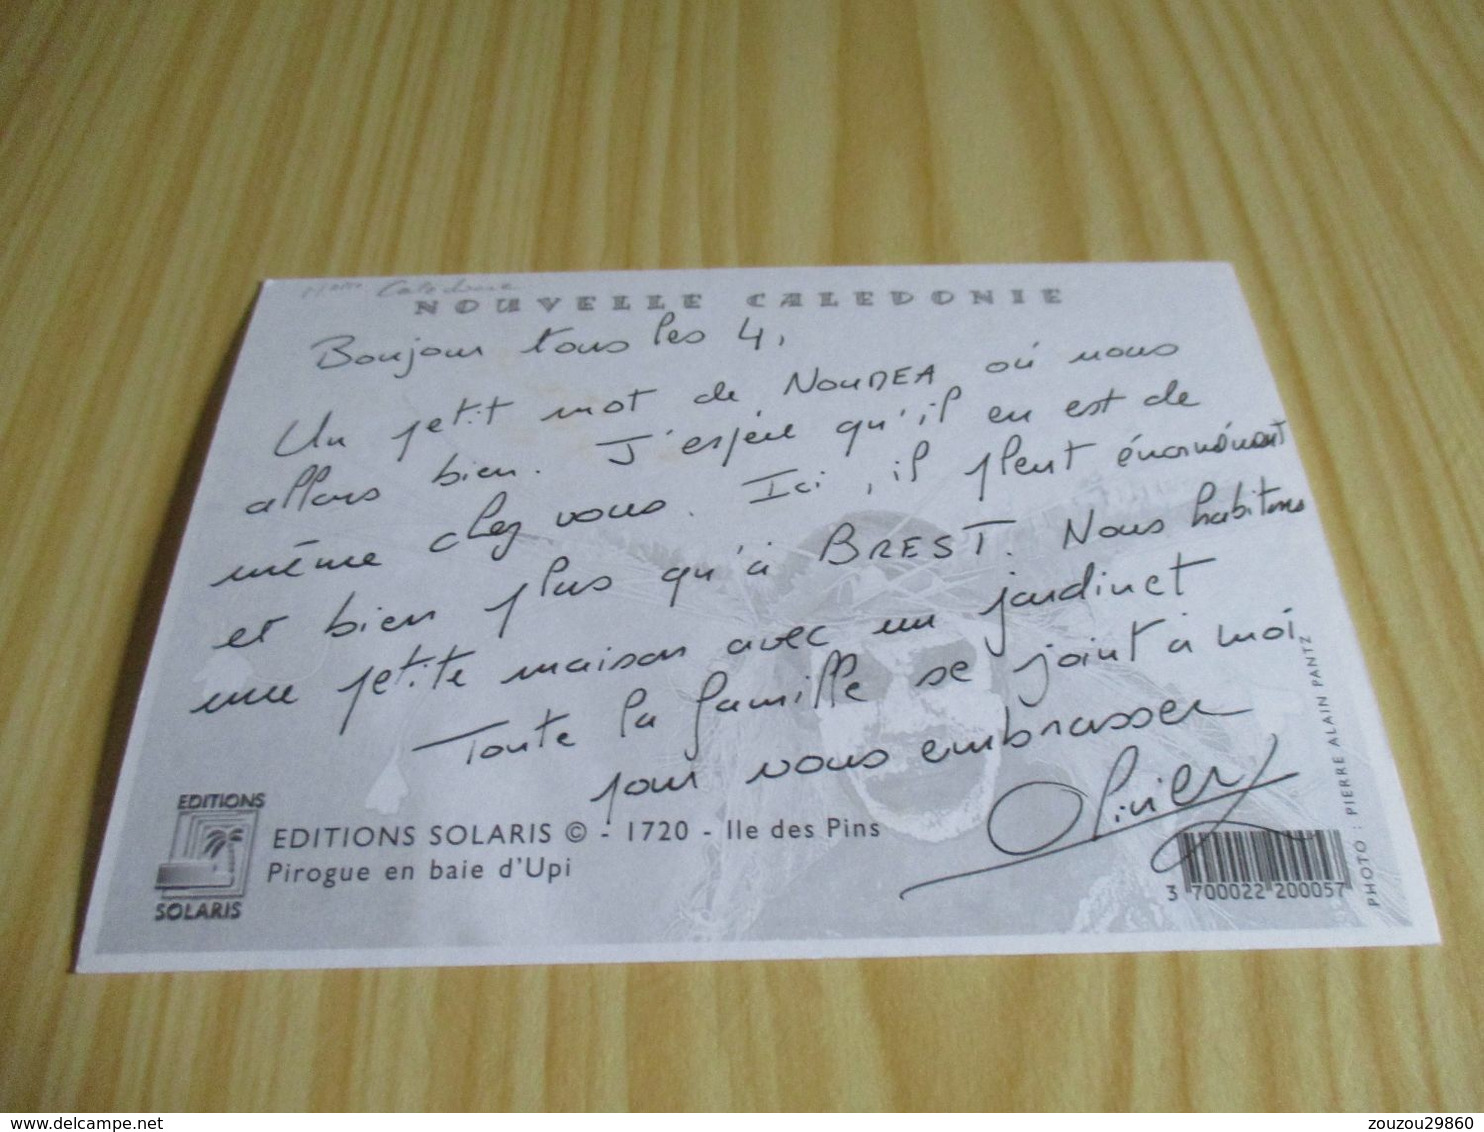 Calédonie
NOUVELLE CALEDONIE
Bonjour tous les 4,
Un petit mot de NOUMEA où nous
allons bien. J'espère qu'il en est de
même chez vous. Ici, il pleut énormément
et bien plus qu'à BREST. Nous habitons
une petite maison avec un jardinet
Toute la famille se joint à moi
pour vous embrasser
Olivier
EDITIONS
SOLARIS
EDITIONS SOLARIS © - 1720 - Ile des Pins
Pirogue en baie d'Upi
3 700022 200057
PHOTO : PIERRE ALAIN PANTZ
delcampe.net
zouzou29860